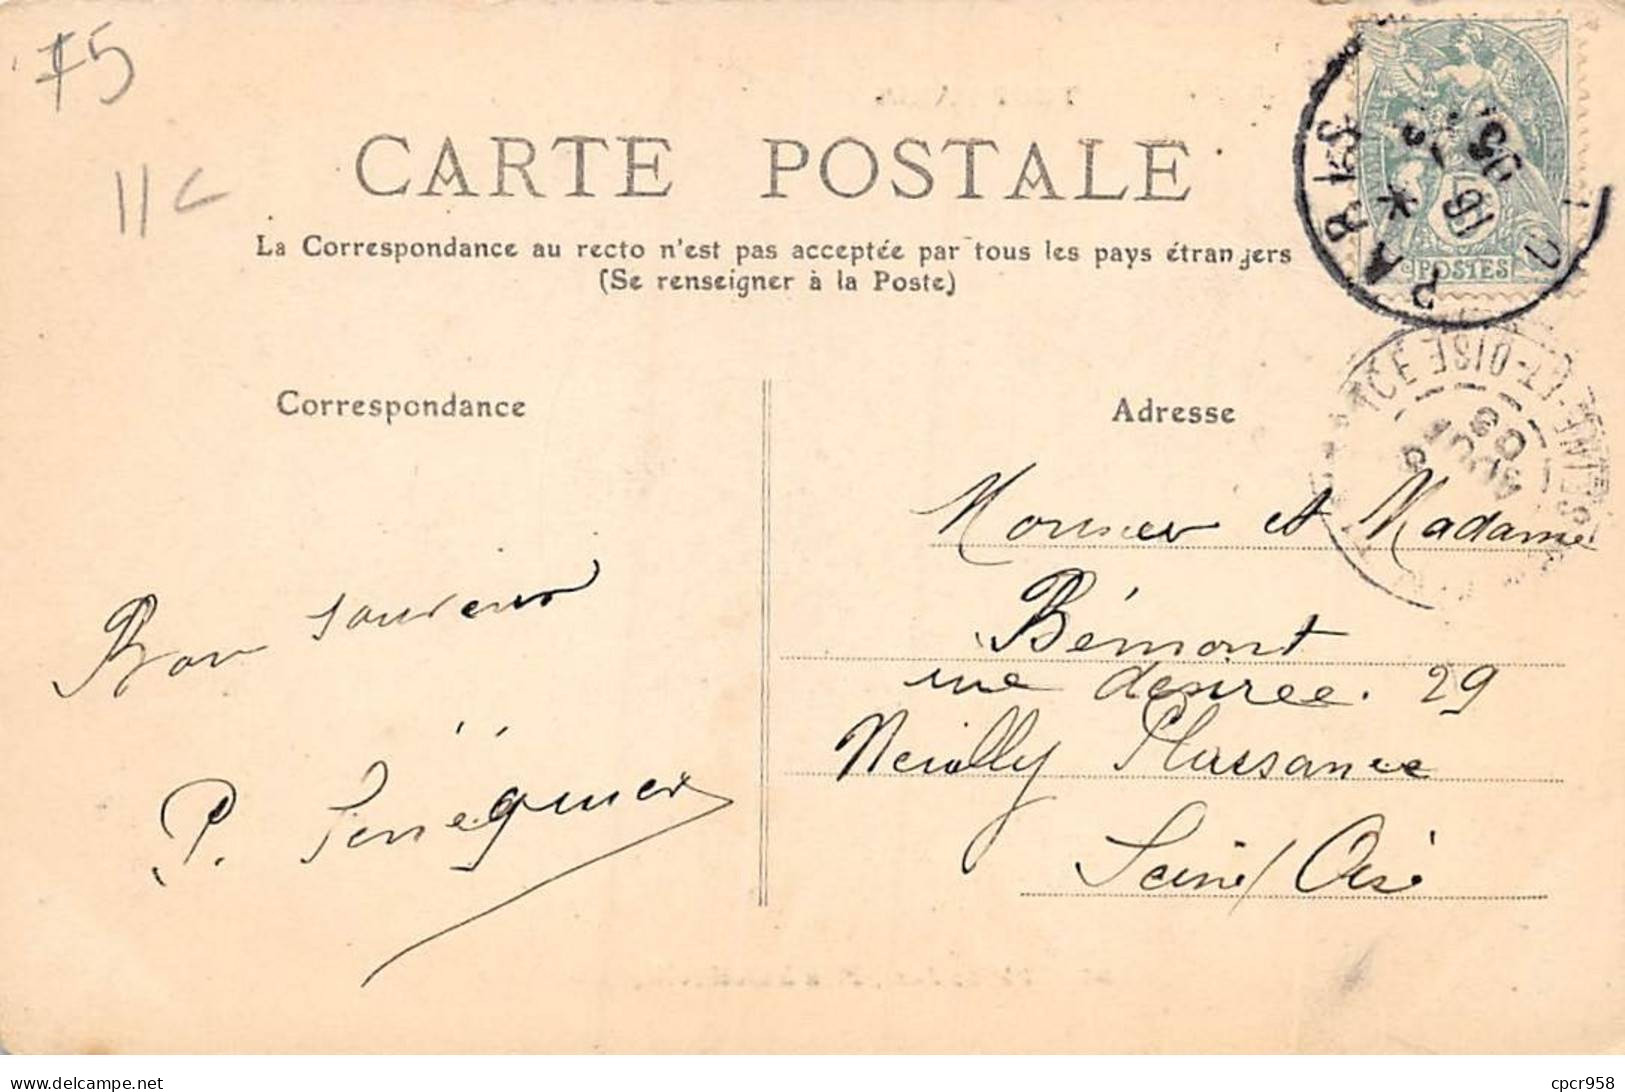 75
11 c
CARTE POSTALE
La Correspondance au recto n'est pas acceptée par tous les pays étrangers
(Se renseigner à la Poste)
PARIS
POSTES
SEINE-ET-OISE
Correspondance
Adresse
Bon souvenir
Monsieur et Madame
Bémont
rue desiree. 29
Neuilly Plaisance
Seine/Oise
cpcr958